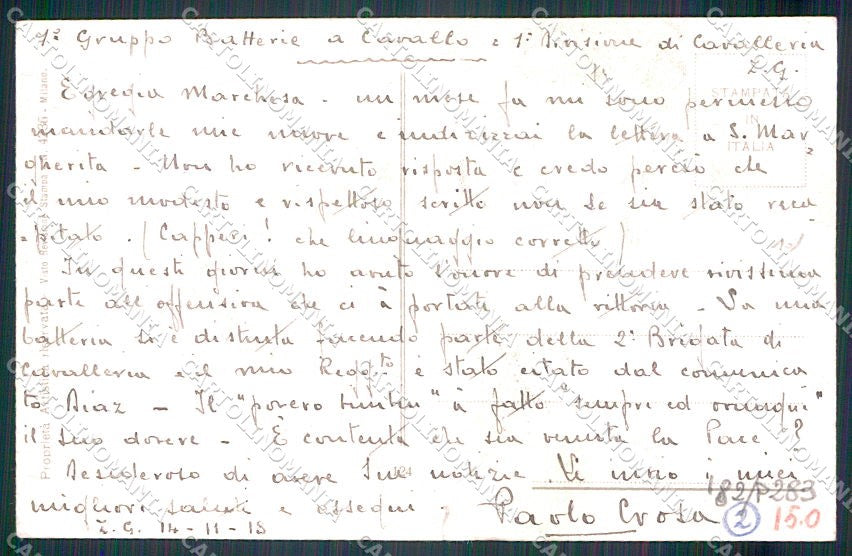 1° Gruppo Batterie a Cavallo e 1ª Divisione di Cavalleria
Z.G.
Egregia Marchesa - un mese fa mi sono permesso
mandarle mie nuove e indirizzai la lettera a S. Mar-
gherita - Non ho ricevuto risposta e credo perciò che
il mio modesto e rispettoso scritto non Le sia stato reca-
-pitato. (Capperi! che linguaggio corretto)
In questi giorni ho avuto l'onore di prendere vivissima
parte all'offensiva che ci à portati alla vittoria - La mia
batteria si è distinta facendo parte della 2ª Brigata di
Cavalleria e il mio Regg.to è stato citato dal comunica
to Diaz - Il "povero" à fatto "sempre ed ovunque"
il suo dovere - È contenta che sia venuta la Pace?
Desideroso di avere Sue notizie Le invio i miei
migliori saluti e ossequi.
Paolo Crosa
Z.G. 14-11-18
STAMPATA
IN
ITALIA
Proprietà Artistica riservata
Milano.
182/P283
2
15.0
CARTOLINOMANIA